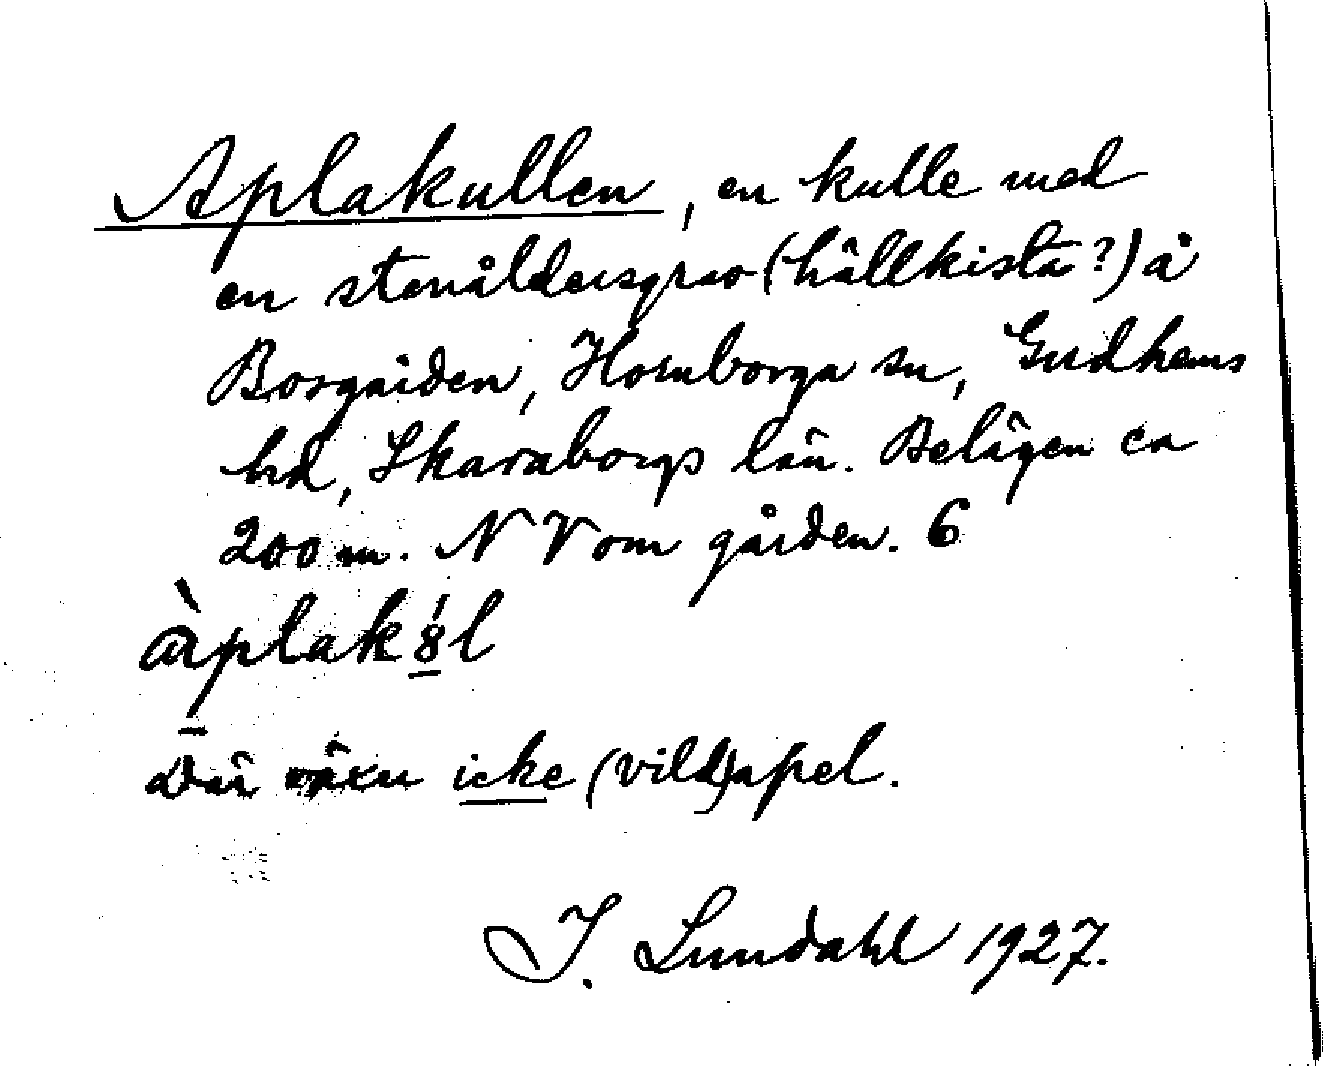 Aplakullen, en kulle med
en stenåldersgrav (hällkista?) å
Borgården, Hornborga sn, Gudhems
hd, Skaraborgs län. Belägen ca
200 m. NV om gården. 6
àplak8́l
Där växer icke (vild)apel.
J. Lundahl 1927.